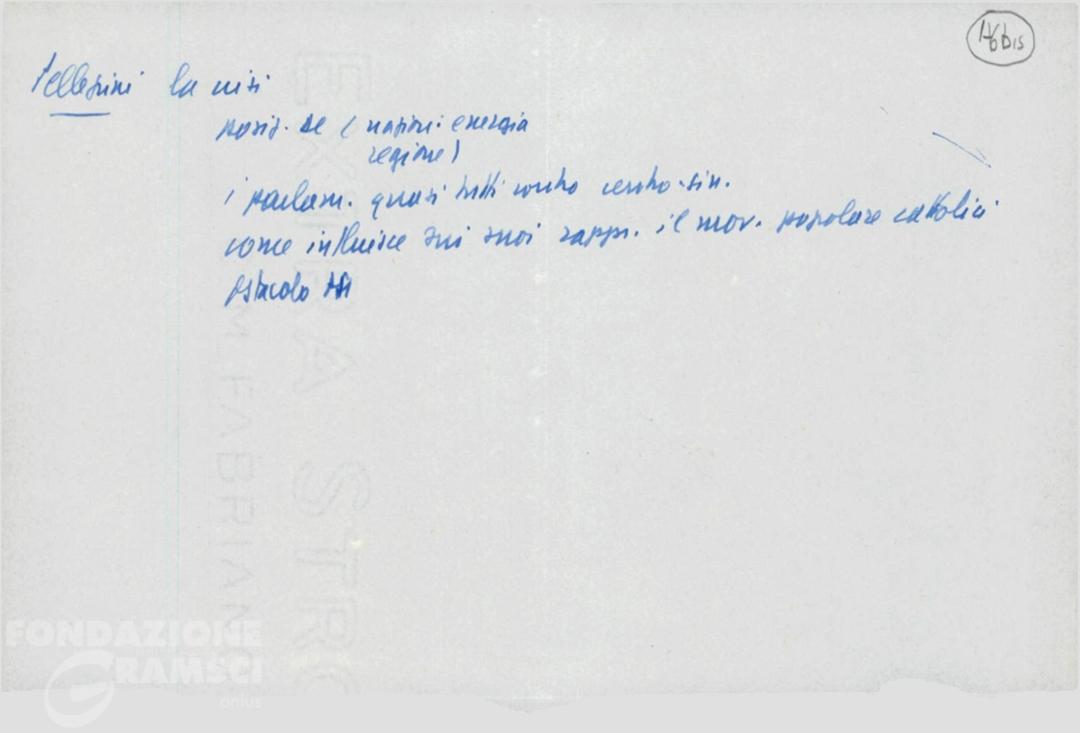 16 bis
Pellegrini la crisi
posiz. DC (nazion. energia
regione)
i parlam. quasi tutti contro centro-sin.
come influisce sui suoi rapp. il mov. popolare cattolici
ostacolo
EXTRA STR
M. FABRIANO
FONDAZIONE
GRAMSCI
onlus